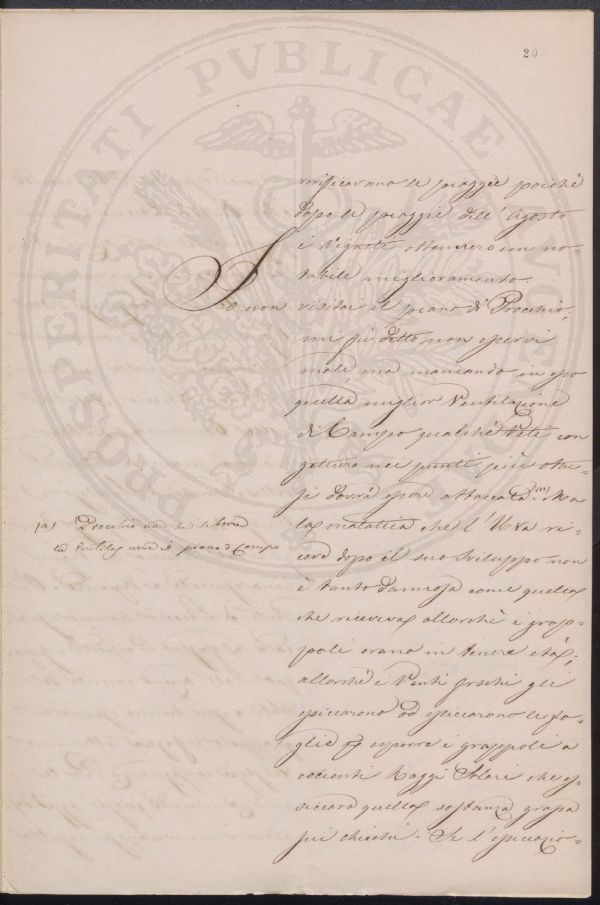 20
PROSPERITATI PVBLICAE AVGENDAE
verificarono le piogge poichè
dopo le pioggie dell' Agosto
i Vigneti ottennero un no-
tabile miglioramento.
Io non visitai il piano di Procchio,
mi fù detto non esservi
male, ma mancando in esso
quella miglior Ventilazione
di Campo qualche Vite con
gettura nei punti più
dovrà essere attaccata. (a) Ma
la malattia che l' Uva ri
ceve dopo il suo sviluppo non
è tanto dannosa come quella
che riceveva allorchè i grap-
poli erano in tenera età;
allorchè i Venti freschi gli
essiccarono od essiccarono le fo-
glie p esporre i grappoli a
cocenti Raggi Solari che es-
siccava quella sostanza grassa
sui chicchi. Se l' essiccazio-
(a) Procchio non ha la libera
ventilaz come il piano d Campo